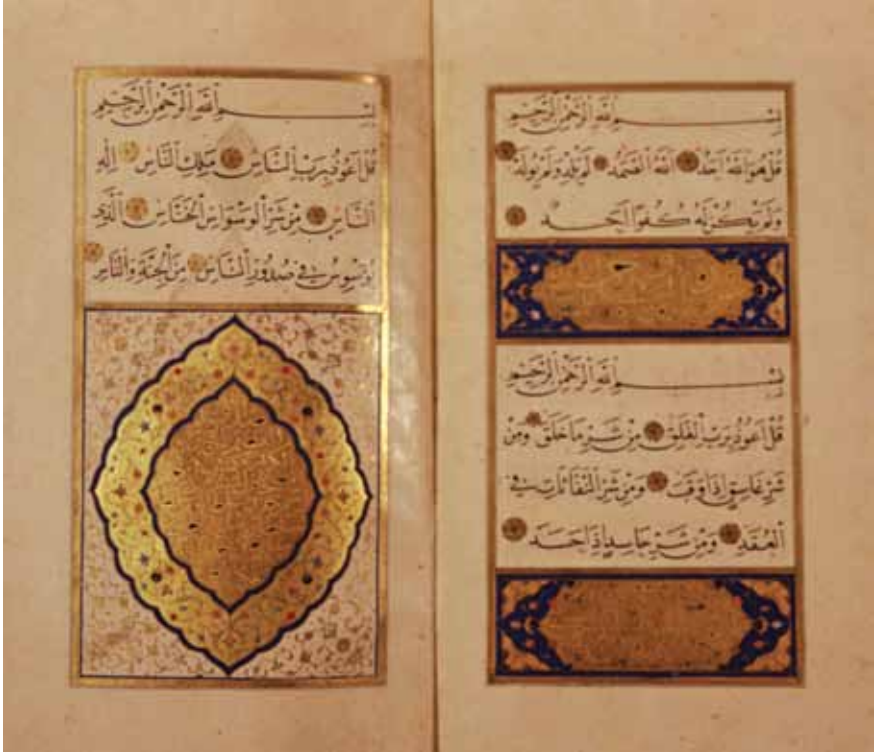 بِسْمِ ٱللَّهِ ٱلرَّحْمَٰنِ ٱلرَّحِيمِ
قُلْ هُوَ ٱللَّهُ أَحَدٌ ٱللَّهُ ٱلصَّمَدُ لَمْ يَلِدْ وَلَمْ يُولَدْ
وَلَمْ يَكُنْ لَهُ كُفُوًا أَحَدٌ
بِسْمِ ٱللَّهِ ٱلرَّحْمَٰنِ ٱلرَّحِيمِ
قُلْ أَعُوذُ بِرَبِّ ٱلْفَلَقِ مِنْ شَرِّ مَا خَلَقَ وَمِنْ
شَرِّ غَاسِقٍ إِذَا وَقَبَ وَمِنْ شَرِّ ٱلنَّفَّاثَاتِ فِي
ٱلْعُقَدِ وَمِنْ شَرِّ حَاسِدٍ إِذَا حَسَدَ
بِسْمِ ٱللَّهِ ٱلرَّحْمَٰنِ ٱلرَّحِيمِ
قُلْ أَعُوذُ بِرَبِّ ٱلنَّاسِ مَلِكِ ٱلنَّاسِ إِلَٰهِ
ٱلنَّاسِ مِنْ شَرِّ ٱلْوَسْوَاسِ ٱلْخَنَّاسِ ٱلَّذِي
يُوَسْوِسُ فِي صُدُورِ ٱلنَّاسِ مِنَ ٱلْجِنَّةِ وَٱلنَّاسِ